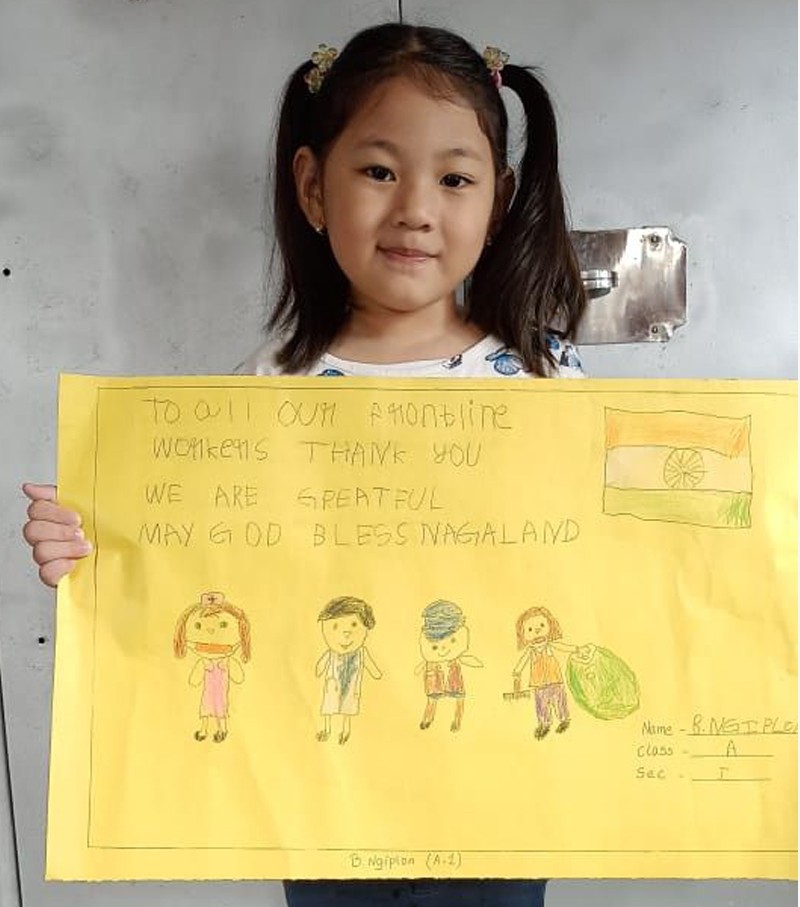 To all our frontline
workers THANK YOU
WE ARE GREATFUL
MAY GOD BLESS NAGALAND
Name - B.NGIPLON
Class - A
Sec - I
B.Ngiplon (A-1)